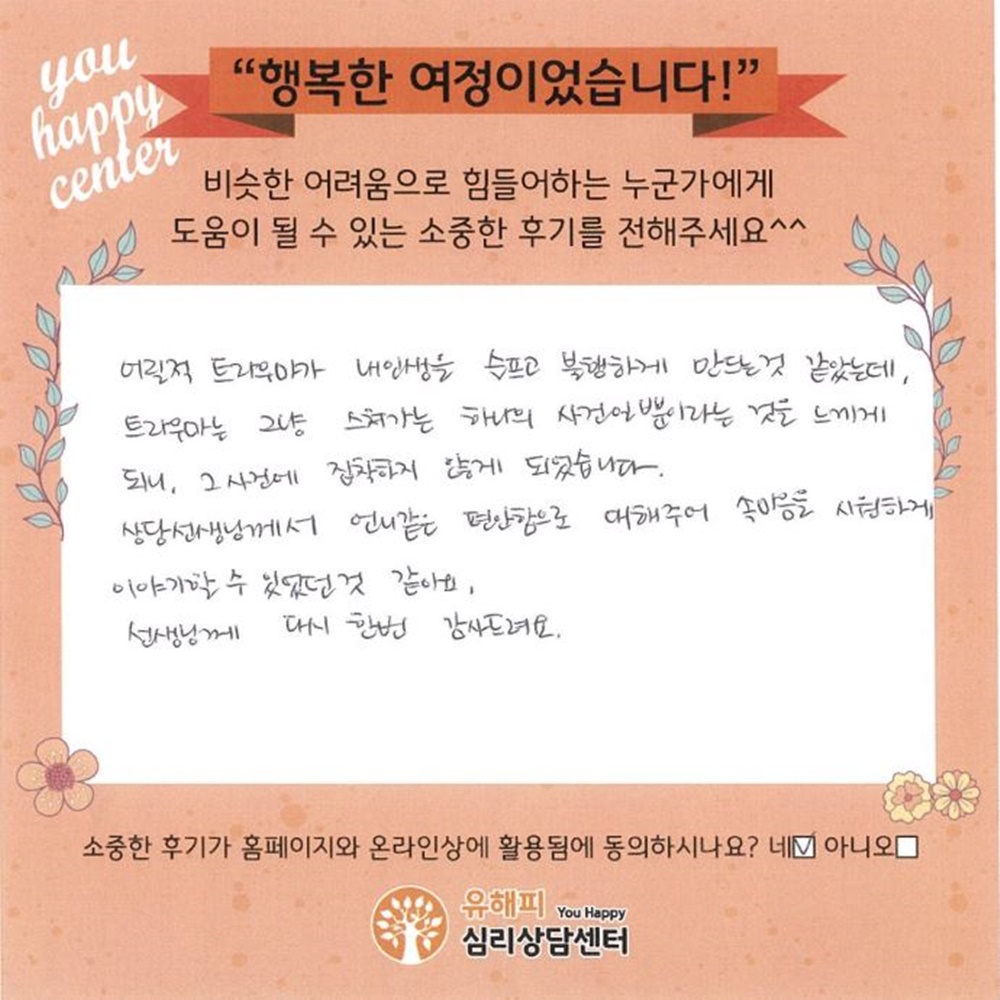 you
happy
center
“행복한 여정이었습니다!”
비슷한 어려움으로 힘들어하는 누군가에게
도움이 될 수 있는 소중한 후기를 전해주세요^^
어릴적 트라우마가 내인생을 슬프고 불행하게 만드는것 같았는데,
트라우마는 그냥 스쳐가는 하나의 사건일뿐이라는 것을 느끼게
되니, 그 사건에 집착하지 않게 되었습니다.
상담선생님께서 언니같은 편안함으로 대해주어 속마음을 시원하게
이야기할 수 있었던것 같아요,
선생님께 다시 한번 감사드려요.
소중한 후기가 홈페이지와 온라인상에 활용됨에 동의하시나요? 네☑ 아니오☐
유해피 You Happy
심리상담센터